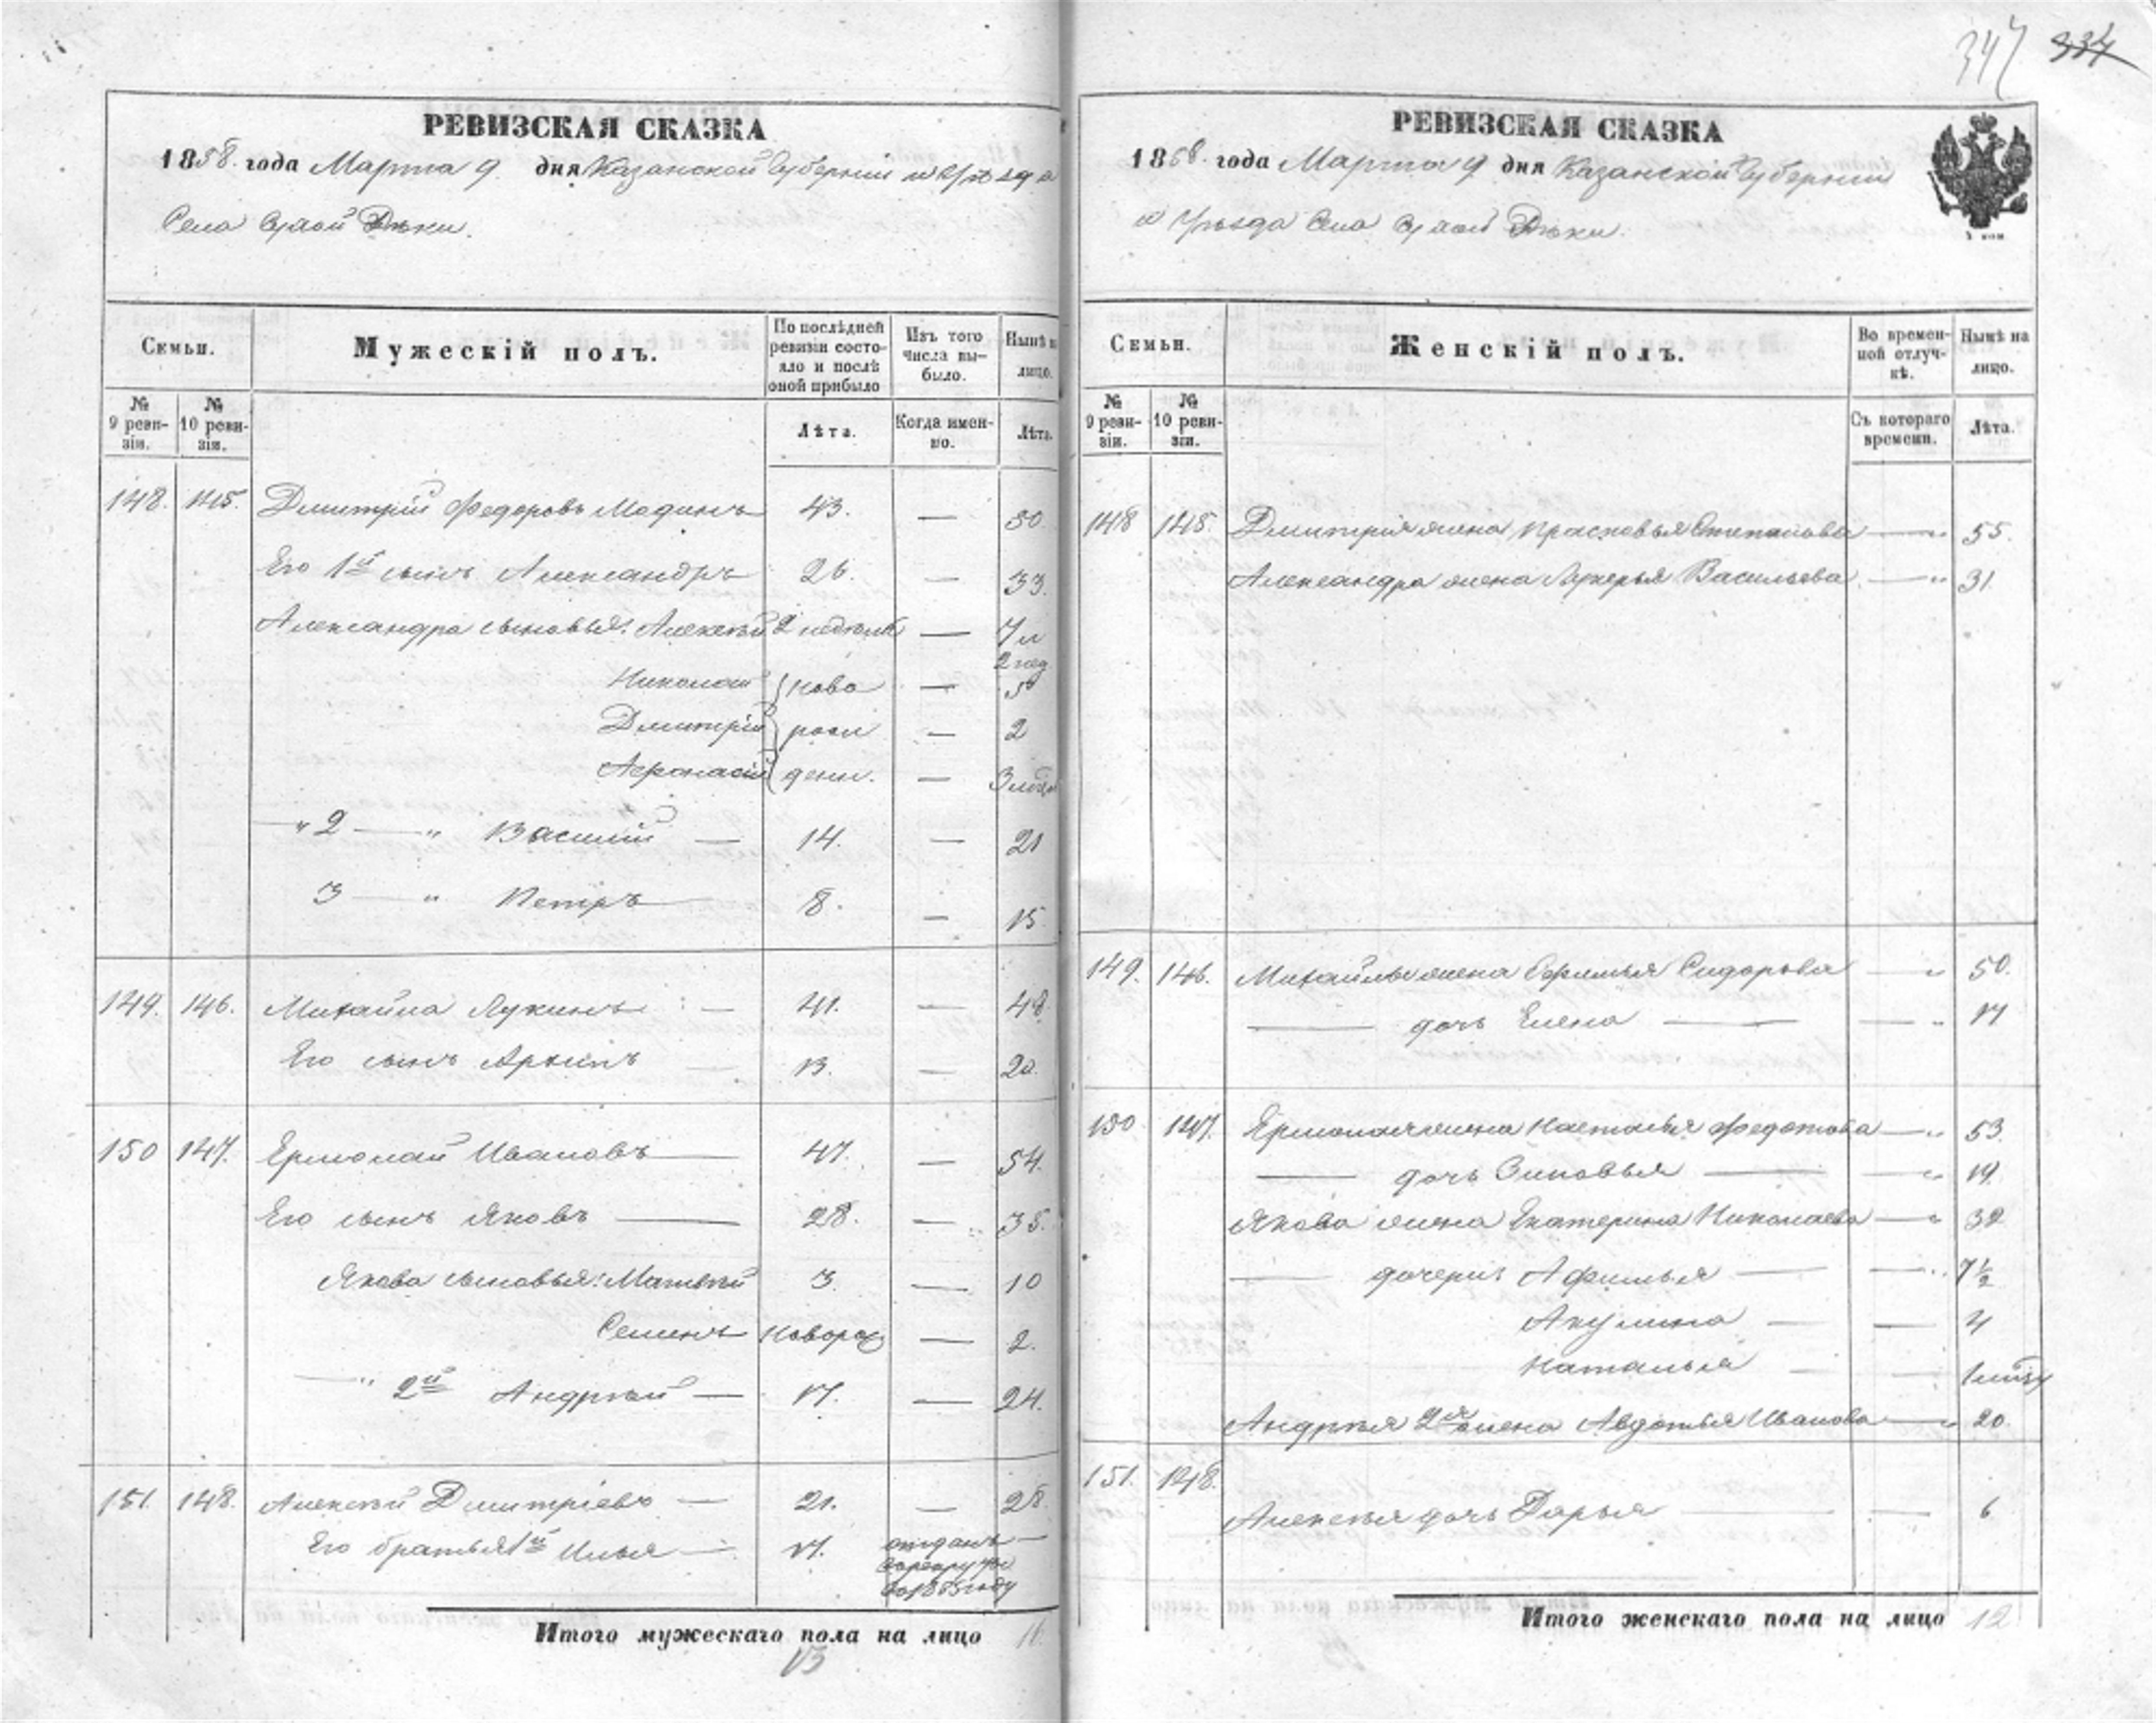 347 334
РЕВИЗСКАЯ СКАЗКА
1858. года Марта 9. дня Казанской Губерніи и Уѣзда
Села Сухой Рѣки.
Семьи.
Мужескій полъ.
По послѣдней ревизіи состояло и послѣ оной прибыло
Изъ того числа вы-было.
Нынѣ на лицо.
№ 9 реви-зіи.
№ 10 реви-зіи.
Лѣта.
Когда имен-но.
Лѣта.
148. 145. Дмитрій Федоровъ Мадинъ 43. — 50
Его 1й сынъ Александръ 26. — 33.
Александра сыновья: Алексѣй 2 недѣли — 7 л 2 нед
Николай ново — 5
Дмитрій рож — 2
Афонасій ден. — 3 мѣся
" 2 — " Василій — 14. — 21
3 — " Петръ 8. — 15
149. 146. Михайла Лукинъ — 41. — 48
Его сынъ Архипъ 13. — 20.
150 147. Ермолай Ивановъ — 47. — 54.
Его сынъ Яковъ — 28. — 35.
Якова сыновья: Матвѣй 3. — 10
Семенъ новорож — 2.
— " 2й Андрей — 17. — 24.
151. 148. Алексѣй Дмитріевъ — 21. — 28
Его братья 1й Илья — 17. отданъ —
въ рекруты
въ 1855 году
Итого мужескаго пола на лицо 16
15
РЕВИЗСКАЯ СКАЗКА
1858. года Марта 9 дня Казанской Губерніи
и Уѣзда Села Сухой Рѣки.
Семьи.
Женскій полъ.
Во времен-ной отлуч-кѣ.
Нынѣ на лицо.
№ 9 реви-зіи.
№ 10 реви-зіи.
Съ котораго времени.
Лѣта.
148 145. Дмитрія жена Прасковья Степанова — " 55.
Александра жена Лукерья Васильева — " 31.
149. 146. Михайлы жена Ефимья Сидорова — " 50.
— дочь Елена — — " 17
150 147. Ермолая жена Настасья Федотова — " 53.
— дочь Зиновья — — " 19.
Якова жена Екатерина Николаева — " 32
— дочери: Афимья — — " 7½
Акулина — — 4
Наталья — — 1 мѣсяц
Андрея 2я жена Авдотья Иванова — " 20.
151. 148.
Алексѣя дочь Дарья — — 6
Итого женскаго пола на лицо 12